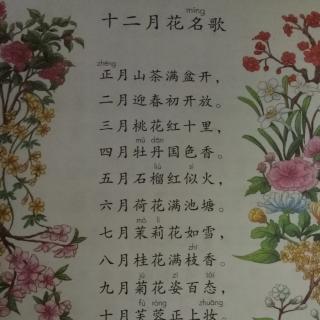 míng
十二月花名歌
zhēng
正月山茶满盆开，
二月迎春初开放。
三月桃花红十里，
mǔ dān
四月牡丹国色香。
liú sì
五月石榴红似火，
六月荷花满池塘。
mò lì
七月茉莉花如雪，
zhī
八月桂花满枝香。
jú zī tài
九月菊花姿百态，
fú róng zhuāng
十月芙蓉正上妆。